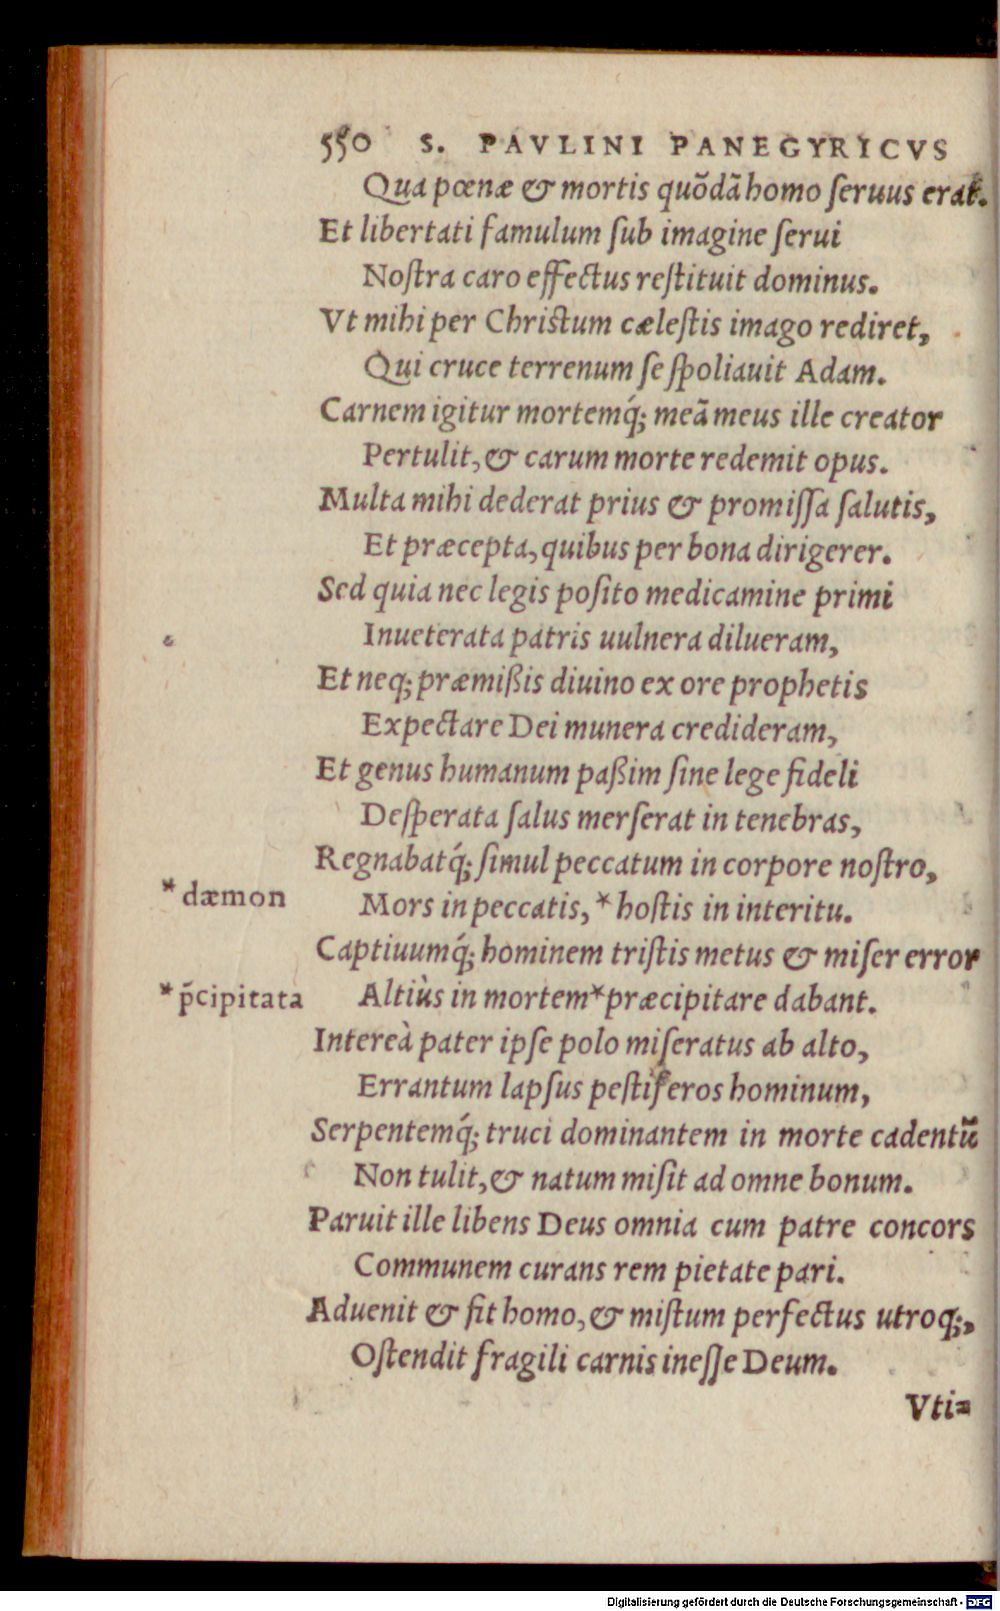 550 S. PAVLINI PANEGYRICVS
Qua pœnæ & mortis quõdã homo ſeruus erat.
Et libertati famulum ſub imagine ſerui
Noſtra caro effectus reſtituit dominus.
Vt mihi per Chriſtum cæleſtis imago rediret,
Qui cruce terrenum ſe ſpoliauit Adam.
Carnem igitur mortemq́; meã meus ille creator
Pertulit, & carum morte redemit opus.
Multa mihi dederat prius & promiſſa ſalutis,
Et præcepta, quibus per bona dirigerer.
Sed quia nec legis poſito medicamine primi
Inueterata patris uulnera dilueram,
Et neq; præmißis diuino ex ore prophetis
Expectare Dei munera credideram,
Et genus humanum paßim ſine lege fideli
Deſperata ſalus merſerat in tenebras,
Regnabatq́; ſimul peccatum in corpore noſtro,
*dæmon
Mors in peccatis, *hoſtis in interitu.
Captiuumq́; hominem triſtis metus & miſer error
*p̃cipitata
Altiùs in mortem *præcipitare dabant.
Intereà pater ipſe polo miſeratus ab alto,
Errantum lapſus peſtiferos hominum,
Serpentemq́; truci dominantem in morte cadentũ
Non tulit, & natum miſit ad omne bonum.
Paruit ille libens Deus omnia cum patre concors
Communem curans rem pietate pari.
Aduenit & fit homo, & miſtum perfectus utroq;,
Oſtendit fragili carnis ineſſe Deum.
Vti=
Digitalisierung gefördert durch die Deutsche Forschungsgemeinschaft - DFG